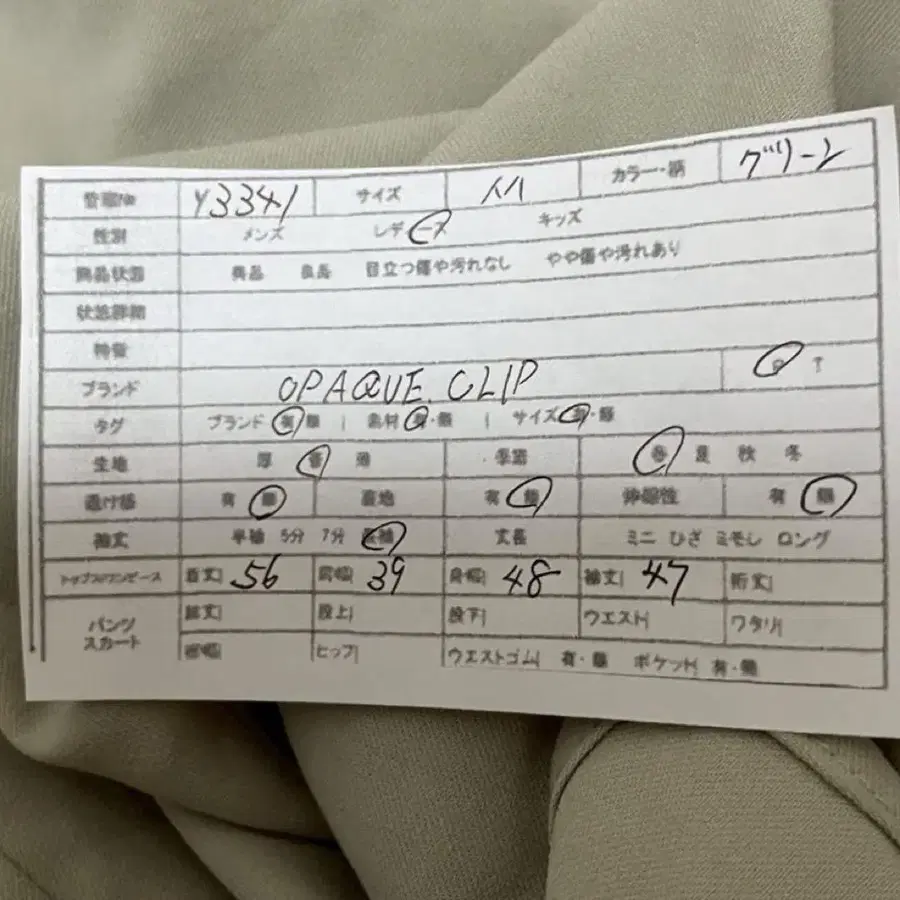 管理No Y3341 サイズ カラー・柄 グリーン
性別 メンズ レディース キッズ
商品状態 美品 良品 目立つ傷や汚れなし やや傷や汚れあり
状態詳細
特徴
ブランド OPAQUE.CLIP T
タグ ブランド 有・無 | 素材 有・無 | サイズ 有・無
生地 厚 普 薄 季節 春 夏 秋 冬
透け感 有 無 裏地 有 無 伸縮性 有 無
袖丈 半袖 5分 7分 長袖 丈長 ミニ ひざ ミモレ ロング
トップス/ワンピース 着丈 56 肩幅 39 身幅 48 袖丈 47 裄丈
パンツ スカート 総丈 股上 股下 ウエスト ワタリ
裾幅 ヒップ ウエストゴム 有・無 ポケット 有・無